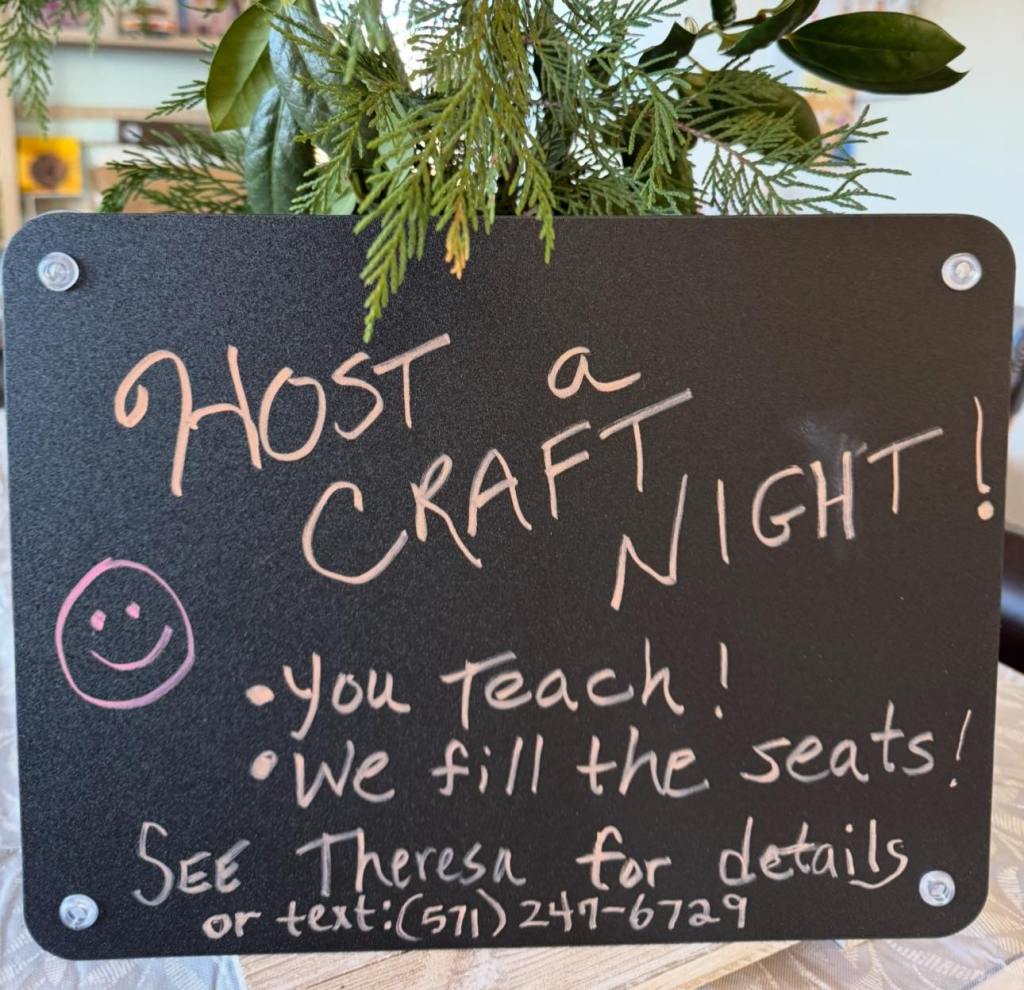 HOST a
CRAFT
NIGHT!
• you Teach!
• We fill the seats!
SEE Theresa for details
or text: (571) 247-6729